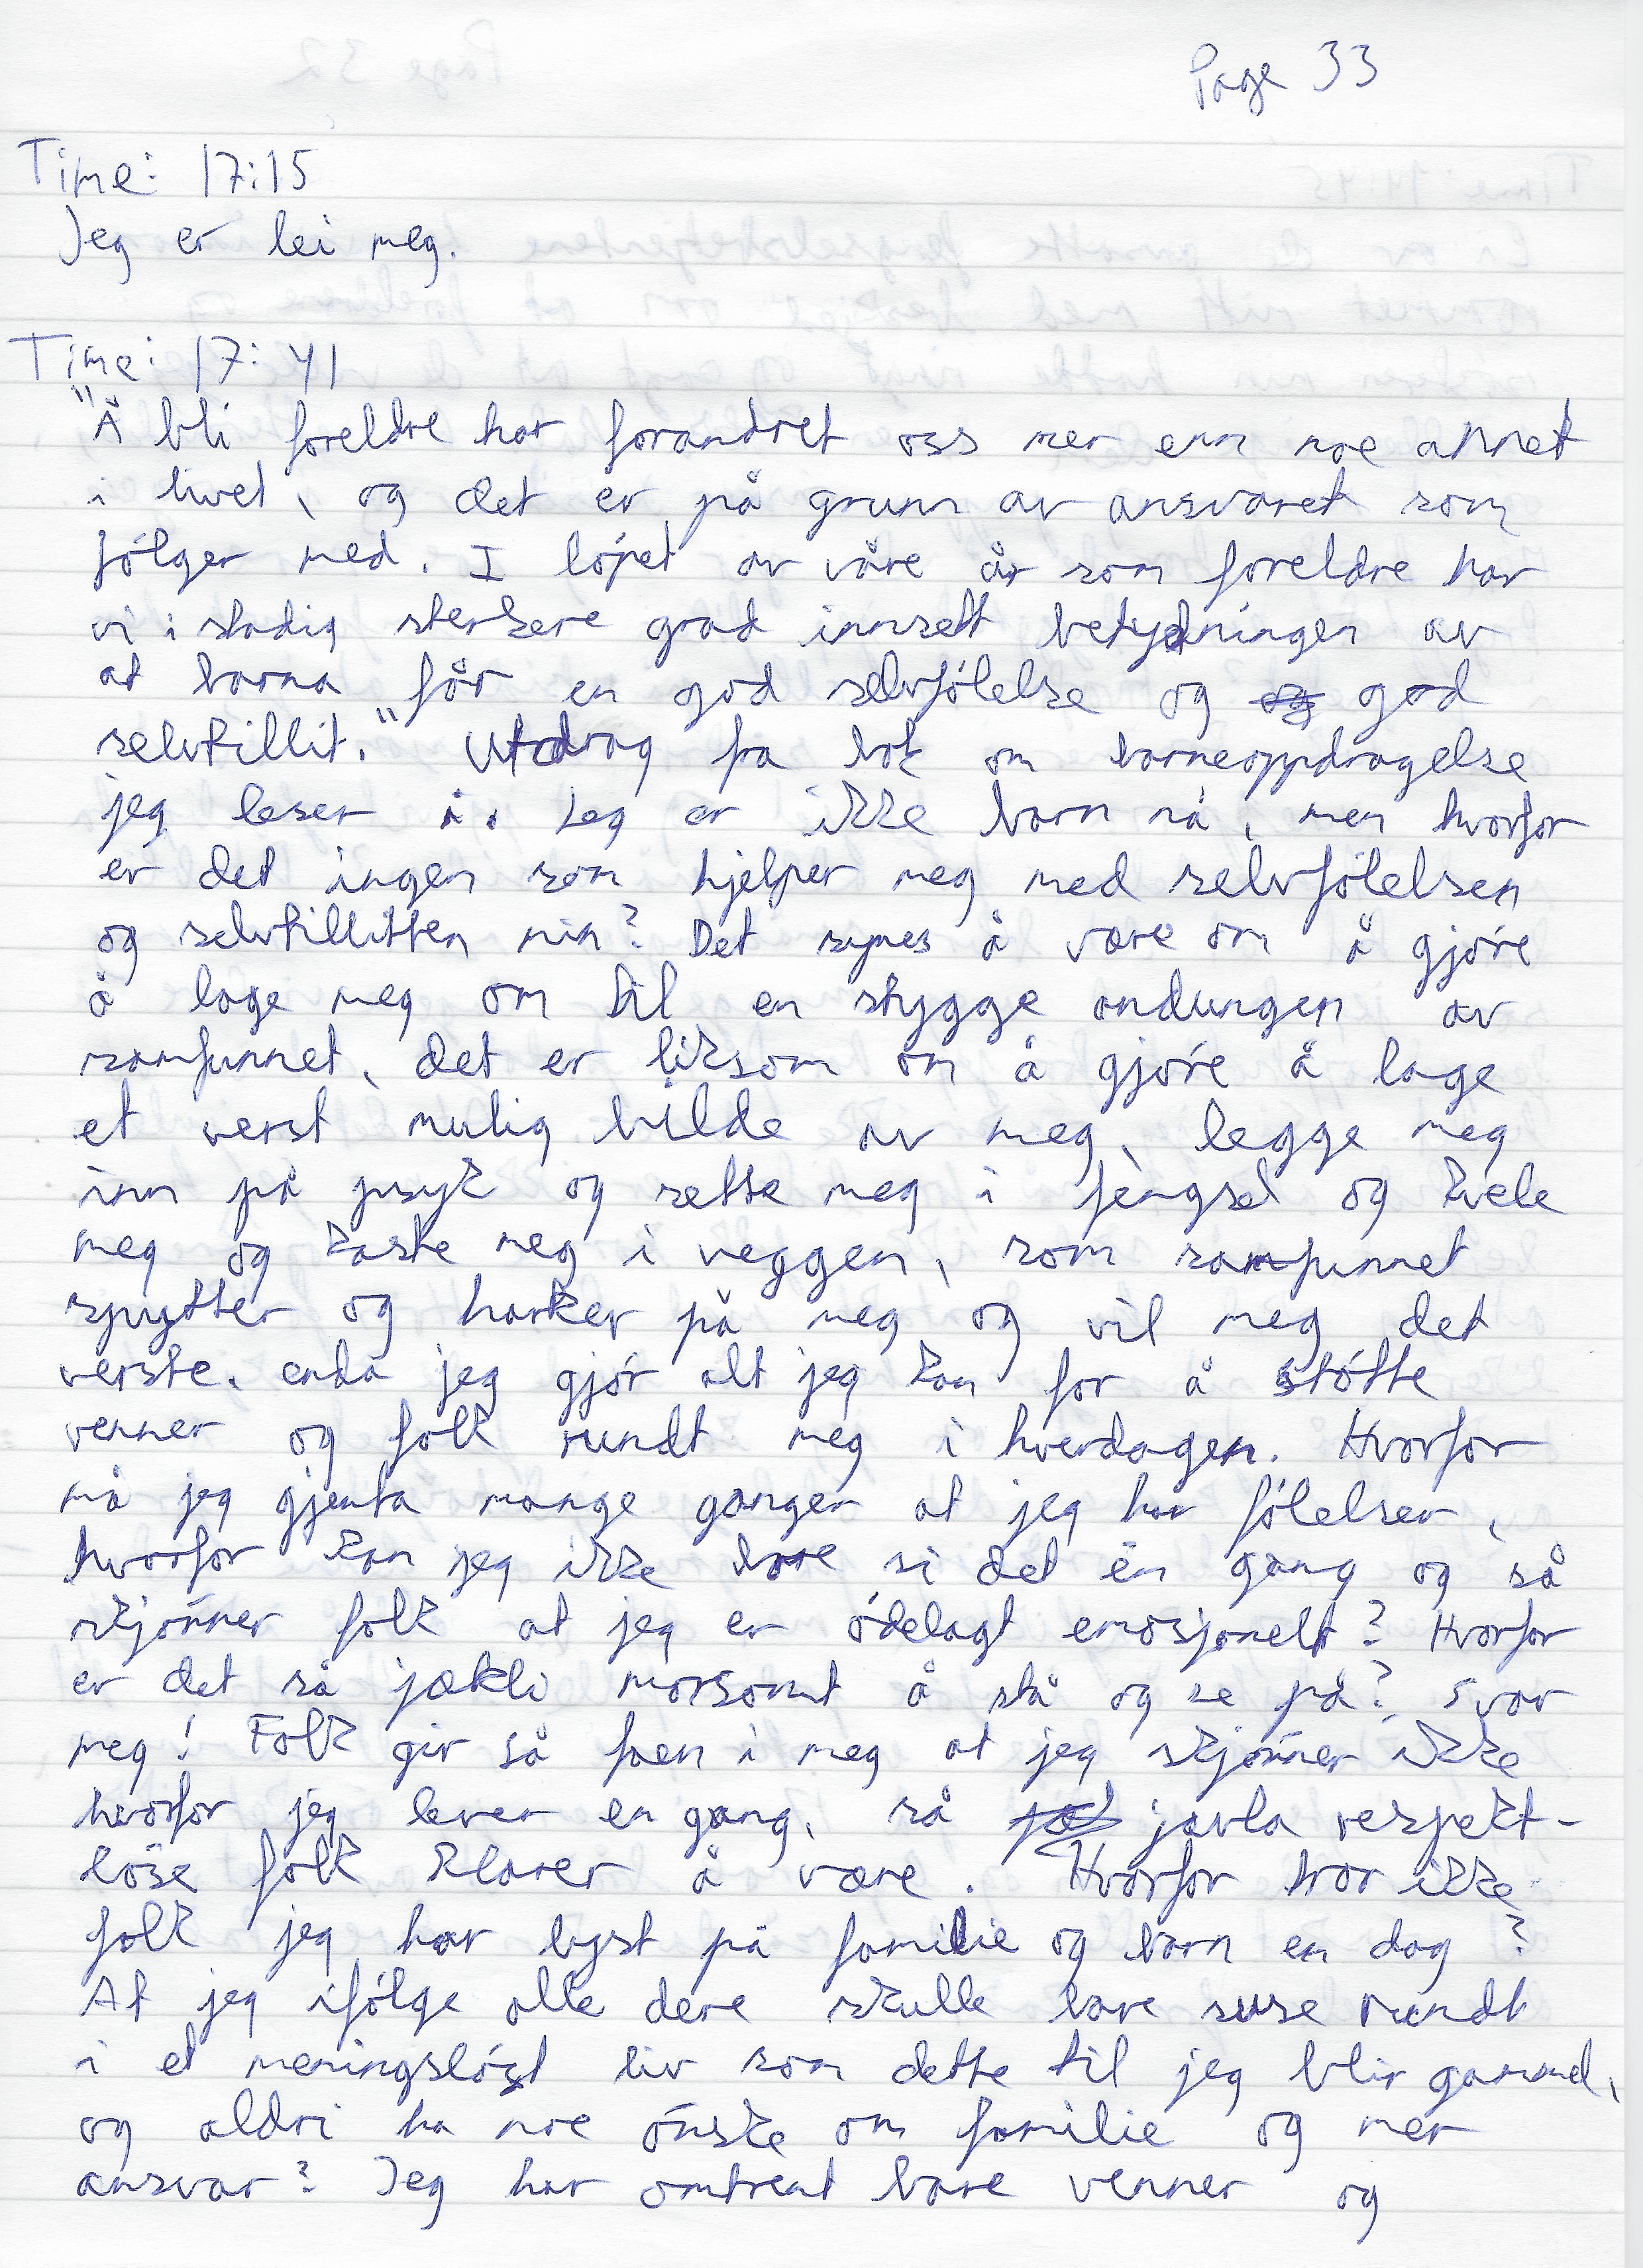 Page 33
Time: 17:15
Jeg er lei meg.
Time: 17:41
"Å bli foreldre har forandret oss mer enn noe annet
i livet, og det er på grunn av ansvaret som
følger med. I løpet av våre år som foreldre har
vi i stadig sterkere grad innsett betydningen av
at barna får en god selvfølelse og og god
selvtillit." Utdrag fra bok om barneoppdragelse
jeg leser i. Jeg er ikke barn nå, men hvorfor
er det ingen som hjelper meg med selvfølelsen
og selvtillitten min? Det synes å være om å gjøre
å lage meg om til en stygge andungen av
samfunnet, det er liksom om å gjøre å lage
et verst mulig bilde av meg, legge meg
inn på psyk og sette meg i fengsel og kvele
meg og kaste meg i veggen, som samfunnet
spytter og harker på meg og vil meg det
verste. enda jeg gjør alt jeg kan for å støtte
venner og folk rundt meg i hverdagen. Hvorfor
må jeg gjenta mange ganger at jeg har følelser,
hvorfor kan jeg ikke bare si det én gang og så
skjønner folk at jeg er ødelagt emosjonelt? Hvorfor
er det så jækli morsomt å stå og se på? Svar
meg! Folk gir så faen i meg at jeg skjønner ikke
hvorfor jeg lever en gang, så jævla respekt-
løse folk klarer å være. Hvorfor tror ikke
folk jeg har lyst på familie og barn en dag?
At jeg ifølge alle dere skulle bare suse rundt
i et meningsløst liv som dette til jeg blir gammel,
og aldri ha noe ønske om familie og mer
ansvar? Jeg har omtrent bare venner og